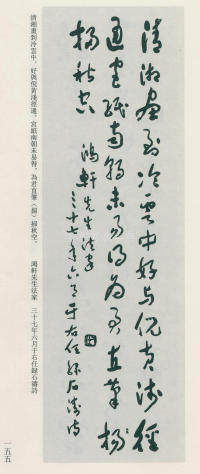 清湘畫到冷雲中好与倪黃淺徑
通宮紙南朝未易得為君直筆掃
掃秋空 鴻軒先生法家
三十七年六月于右任錄石濤詩
清湘畫到冷雲中，好與倪黃淺徑通。宮紙南朝未易得，為君直筆（掃）掃秋空。 鴻軒先生法家 三十七年六月于右任錄石濤詩
一五五